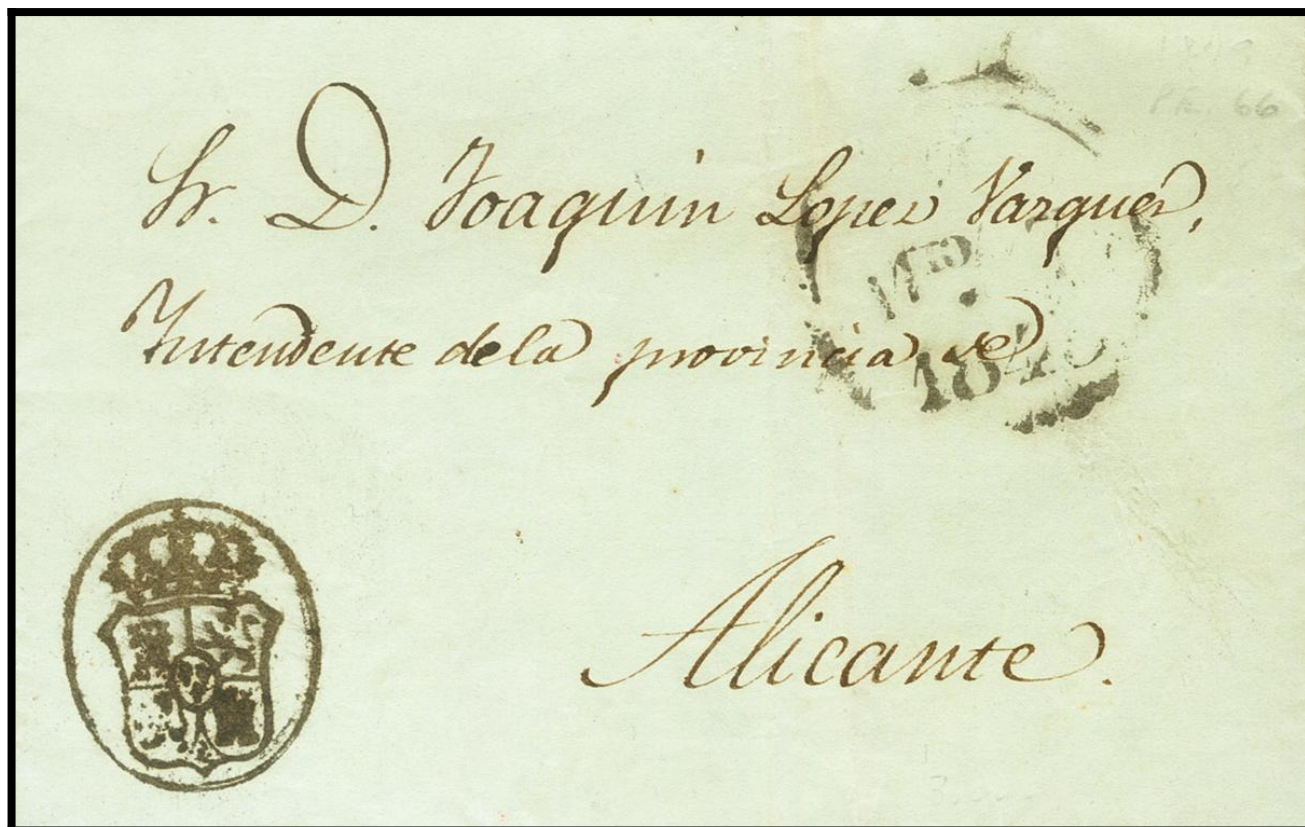 Sr. D. Joaquin Lopez Vazquez,
Intendente de la provincia de
Alicante.